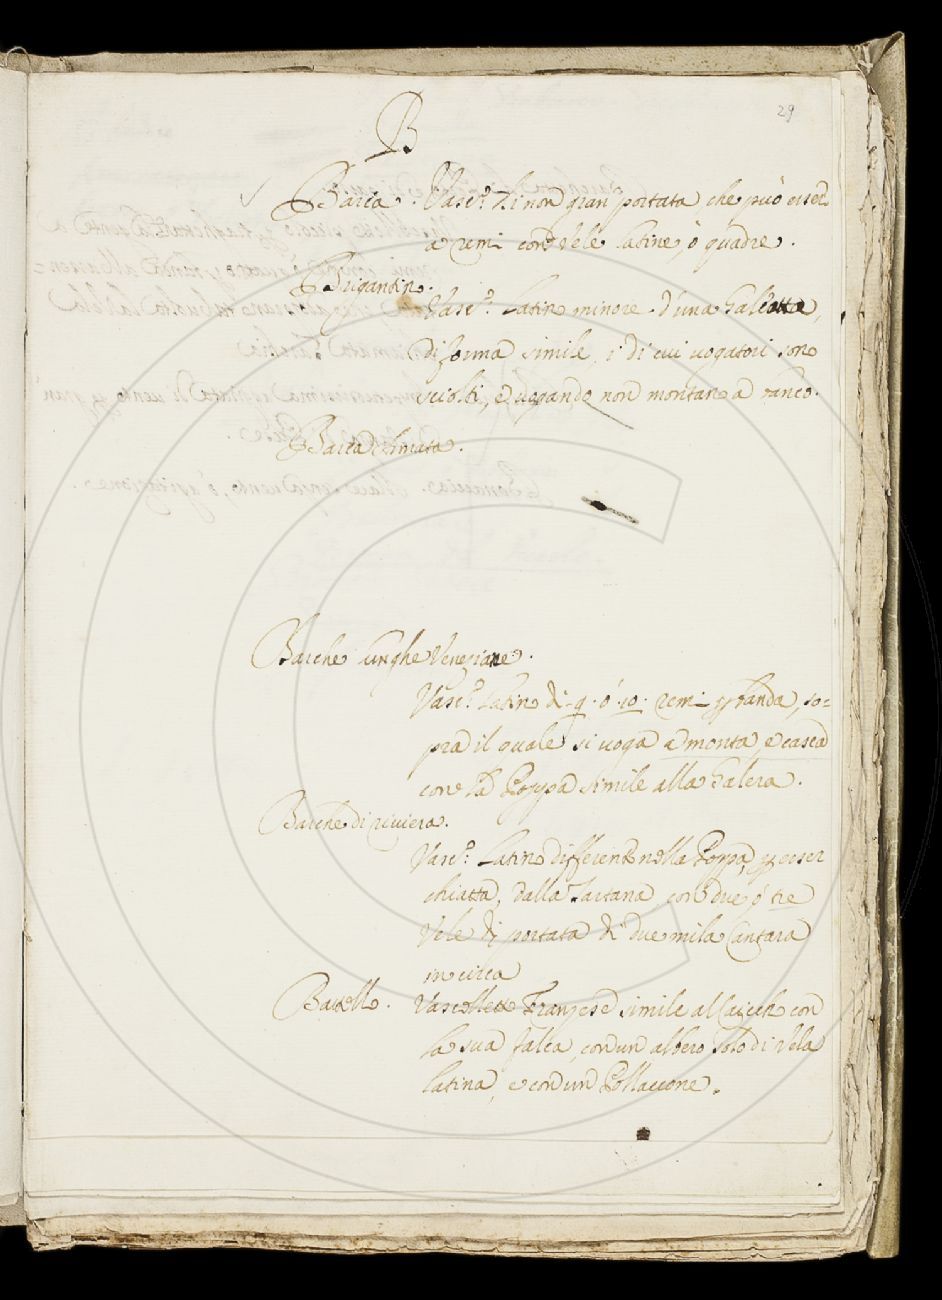 29
B
Barca. Vasc.º di non gran portata che può esser
a remi con Vele latine, ò quadre.
Brigantino.
Vasc.º Latino minore d'una Galeotta,
di forma simile, i di cui vogatori sono
sciolti, e vogando non montano a banco.
Barca
Barche lunghe Veneziane.
Vasc.º Latino di 9. ò 10. remi p banda, so=
pra il quale si voga a monta, e casca
con la Poppa simile alla Galera.
Barche di riviera.
Vasc.º Latino differente nella Poppa, p esser
chiatta, dalla Tartana con due ò tre
Vele di portata di due mila Cantara
in circa
Battello. Vascelletto Franzese simile al Caicch con
la sua falca, con un albero solo di Vela
latina, e con un Pollaccone.